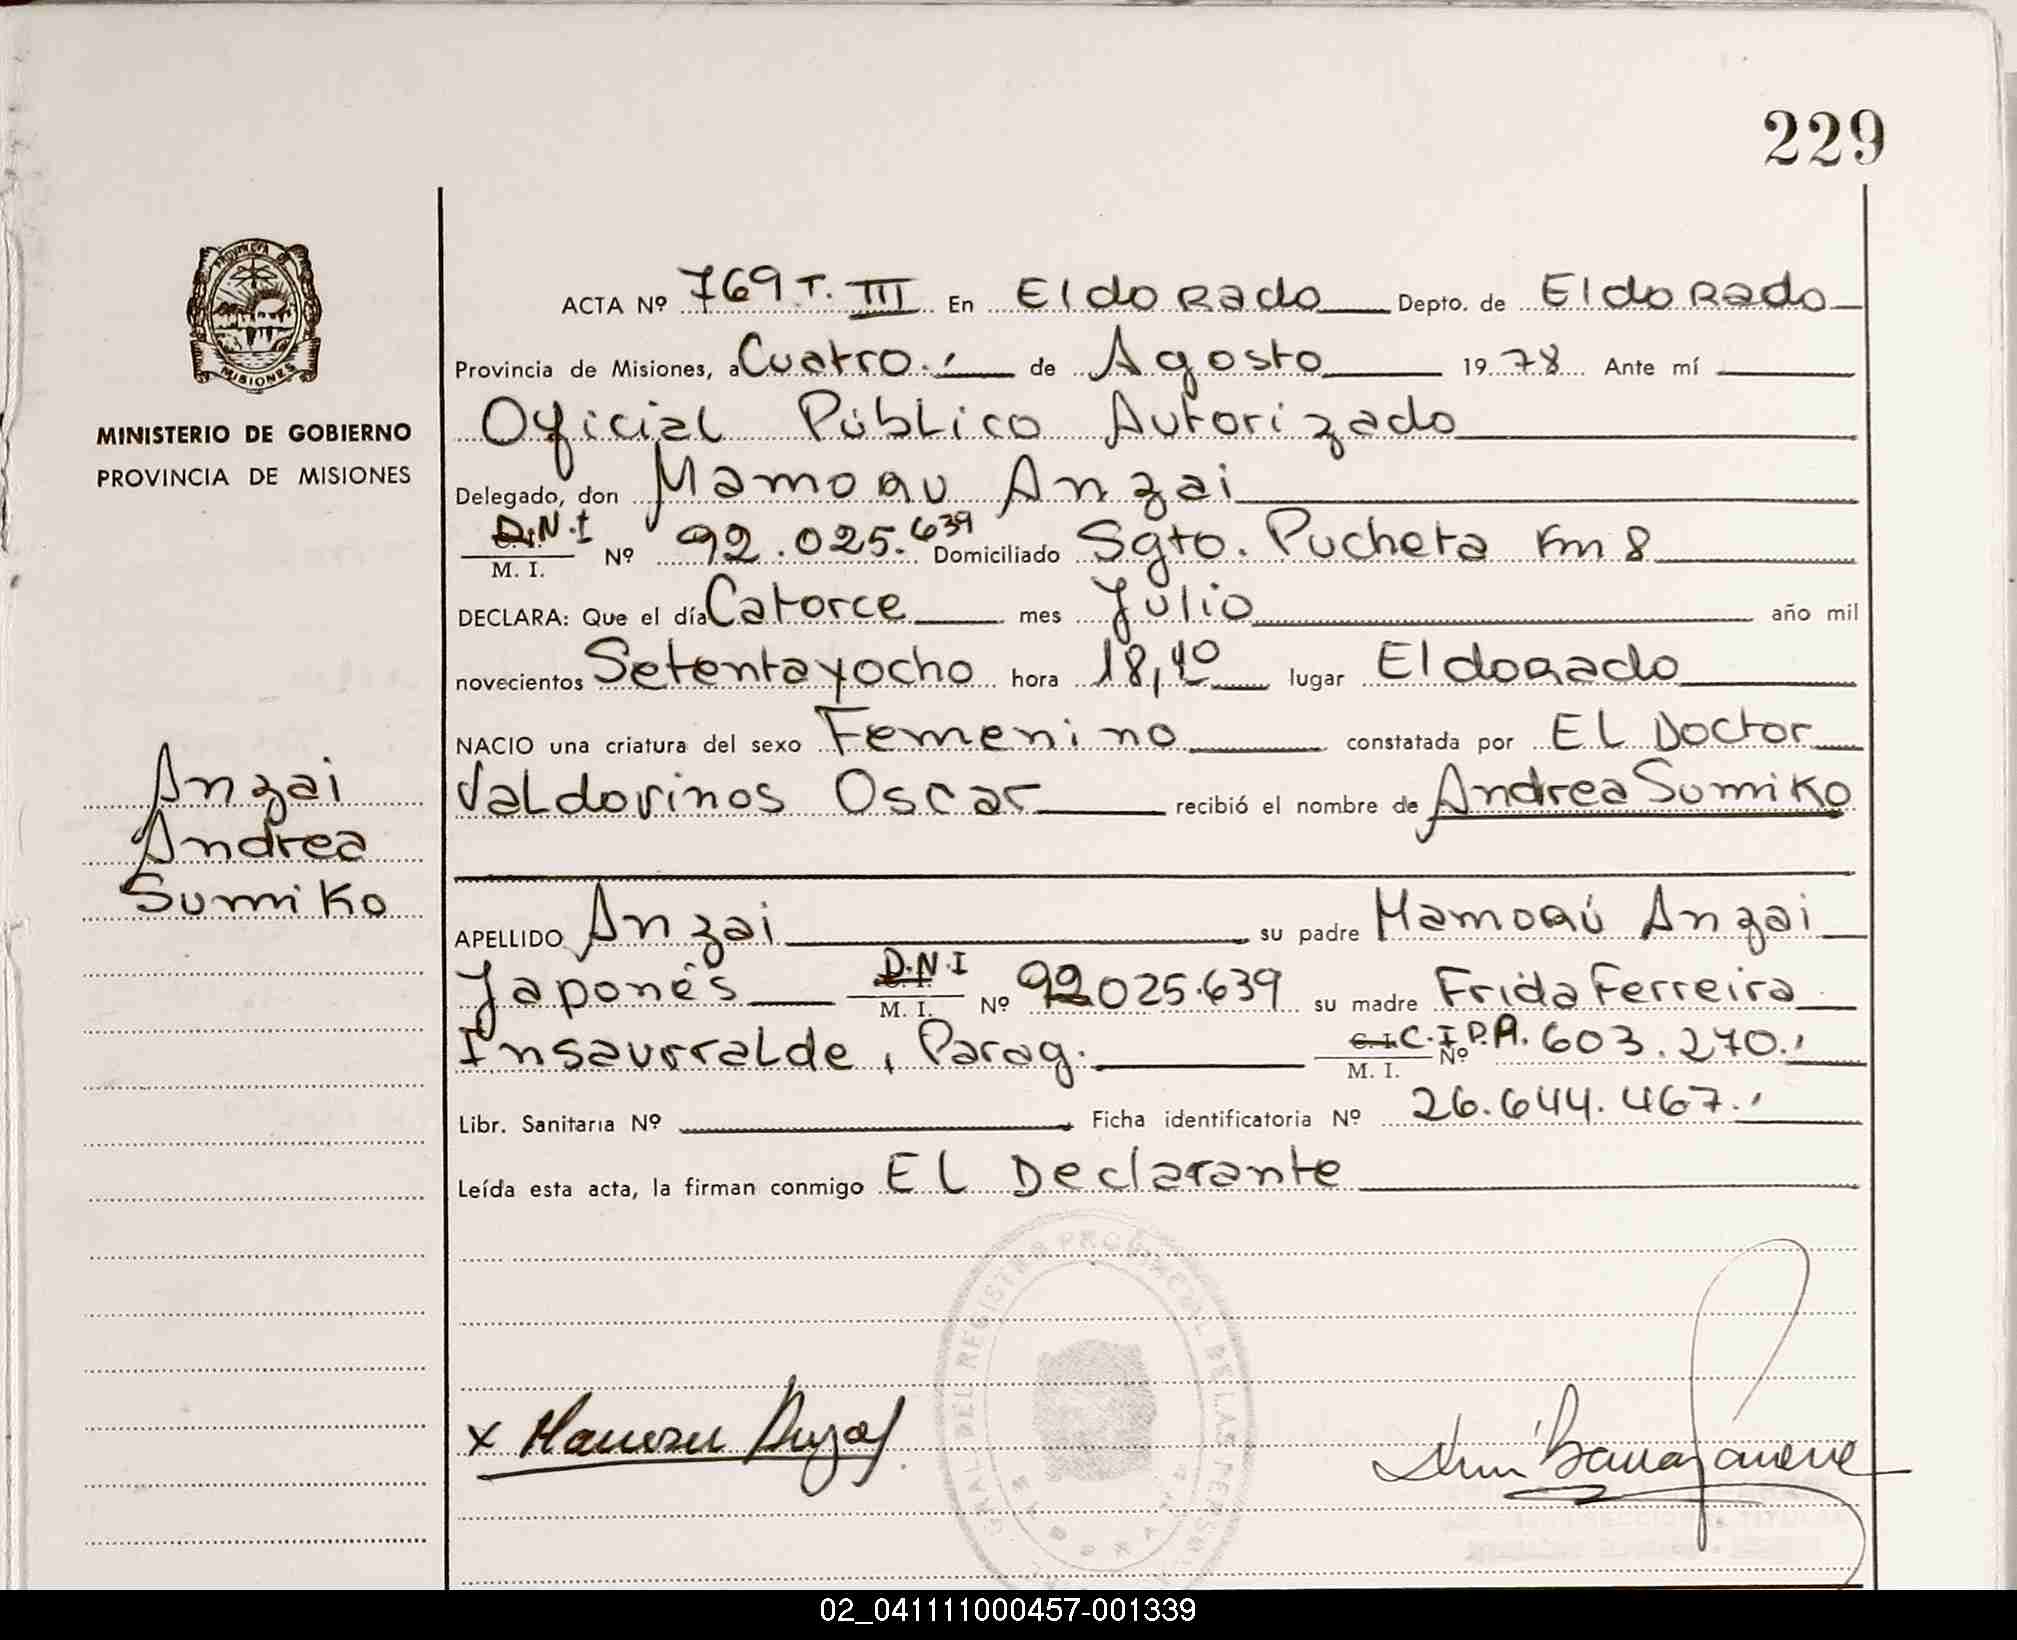 229
PROVINCIA DE
MISIONES
MINISTERIO DE GOBIERNO
PROVINCIA DE MISIONES
Anzai
Andrea
Sumiko
ACTA Nº 769 T. III En Eldorado Depto. de Eldorado
Provincia de Misiones, a Cuatro.- de Agosto 1978 Ante mí
Oficial Público Autorizado
Delegado, don Mamoru Anzai
D.N.I M. I. Nº 92.025.639 Domiciliado Sgto. Pucheta Km 8
DECLARA: Que el día Catorce mes Julio año mil
novecientos Setentayocho hora 18,40 lugar Eldorado
NACIO una criatura del sexo Femenino constatada por El Doctor
Valdovinos Oscar recibió el nombre de Andrea Sumiko
APELLIDO Anzai su padre Mamorú Anzai
Japonés D.N.I M. I. Nº 92025.639 su madre Frida Ferreira
Insaurralde, Parag. C.I. M. I. Nº C.I P.A. 603.270.-
Libr. Sanitaria Nº Ficha identificatoria Nº 26.644.467.-
Leída esta acta, la firman conmigo El Declarante
GRAL. DEL REGISTRO PROVINCIAL DE LAS PERSONAS
x Mamoru Anzai
02_041111000457-001339